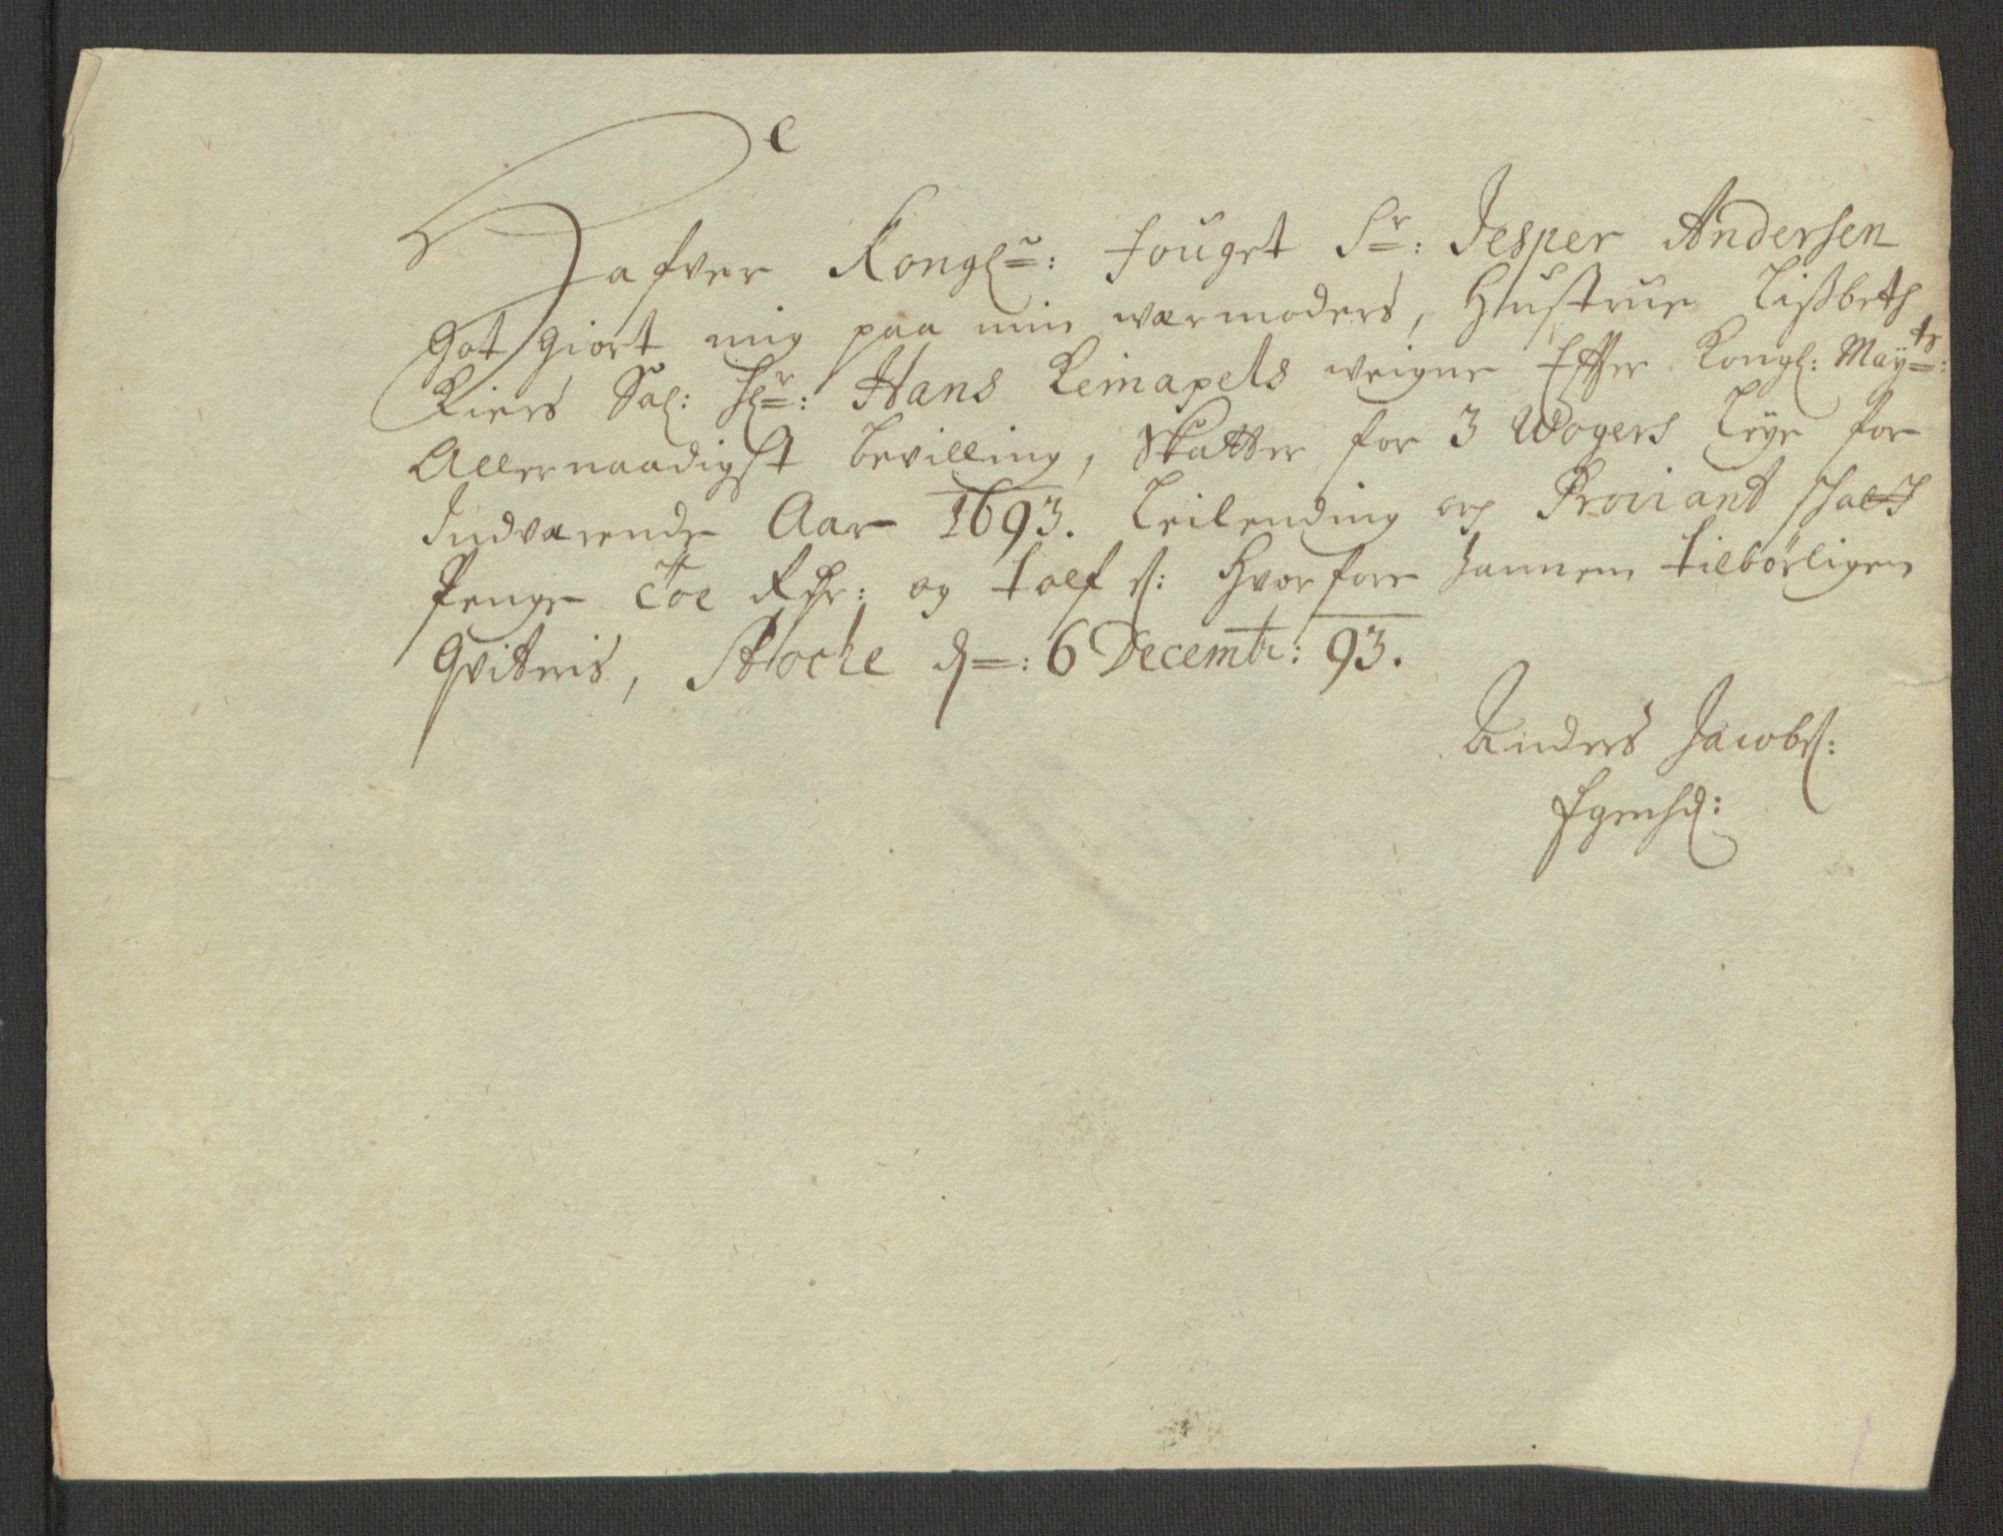 Hafver Kongl: fouget Sr: Jesper Andersen
Got giort mig paa min wærmoders, Hustrue Lißbeth
Riers Sal: Hr: Hans Leinapels weigne Effter Kongl: Mayts:
Allernaadigst bevilling, Skatter for 3 Wogers Leye for
Indværende Aar 1693. Leilending og Proviant skatt
Penge Toe Rdr: og tolf s: Hvorfore hannem tilbörligen
Qviteris, Stocke d: 6 Decembr: 93.
Anders Jacobs:
Egenhd: